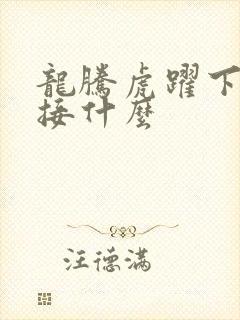 龍騰虎躍下
接什麼
汪德滿